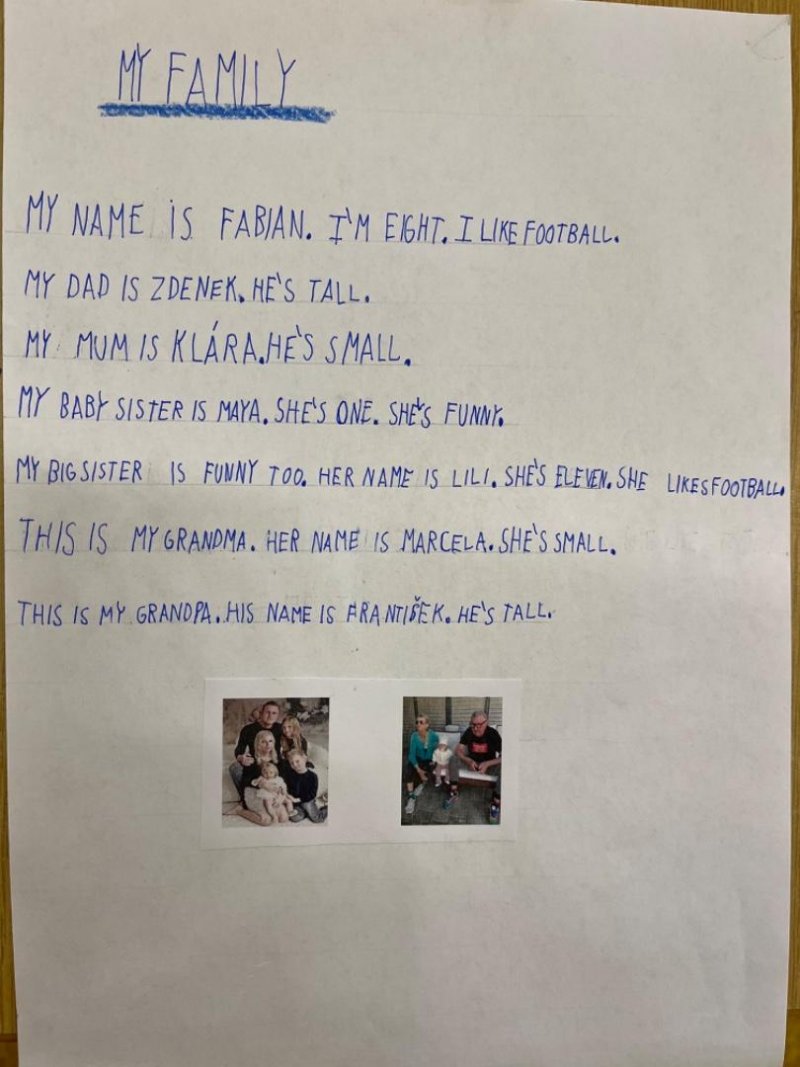 MY FAMILY
MY NAME IS FABIAN. I'M EIGHT. I LIKE FOOTBALL.
MY DAD IS ZDENEK. HE'S TALL.
MY MUM IS KLÁRA. HE'S SMALL.
MY BABY SISTER IS MAYA. SHE'S ONE. SHE'S FUNNY.
MY BIG SISTER IS FUNNY TOO. HER NAME IS LILI. SHE'S ELEVEN. SHE LIKES FOOTBALL.
THIS IS MY GRANDMA. HER NAME IS MARCELA. SHE'S SMALL.
THIS IS MY GRANDPA. HIS NAME IS FRANTIŠEK. HE'S TALL.